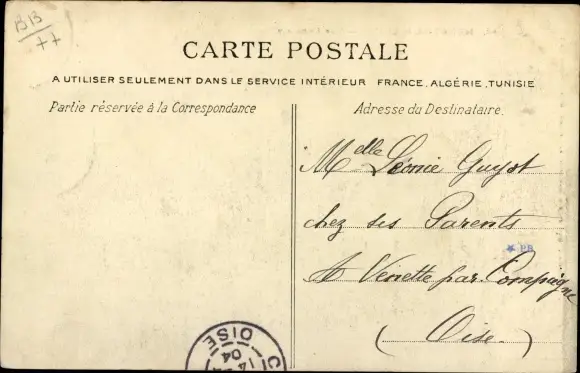 BB
77
CARTE POSTALE
A UTILISER SEULEMENT DANS LE SERVICE INTÉRIEUR FRANCE, ALGÉRIE, TUNISIE
Partie réservée à la Correspondance
Adresse du Destinataire.
Melle Léonie Guyot
chez ses Parents
PB
A Venette par Compiègne
(Oise.)
OISE
14
04